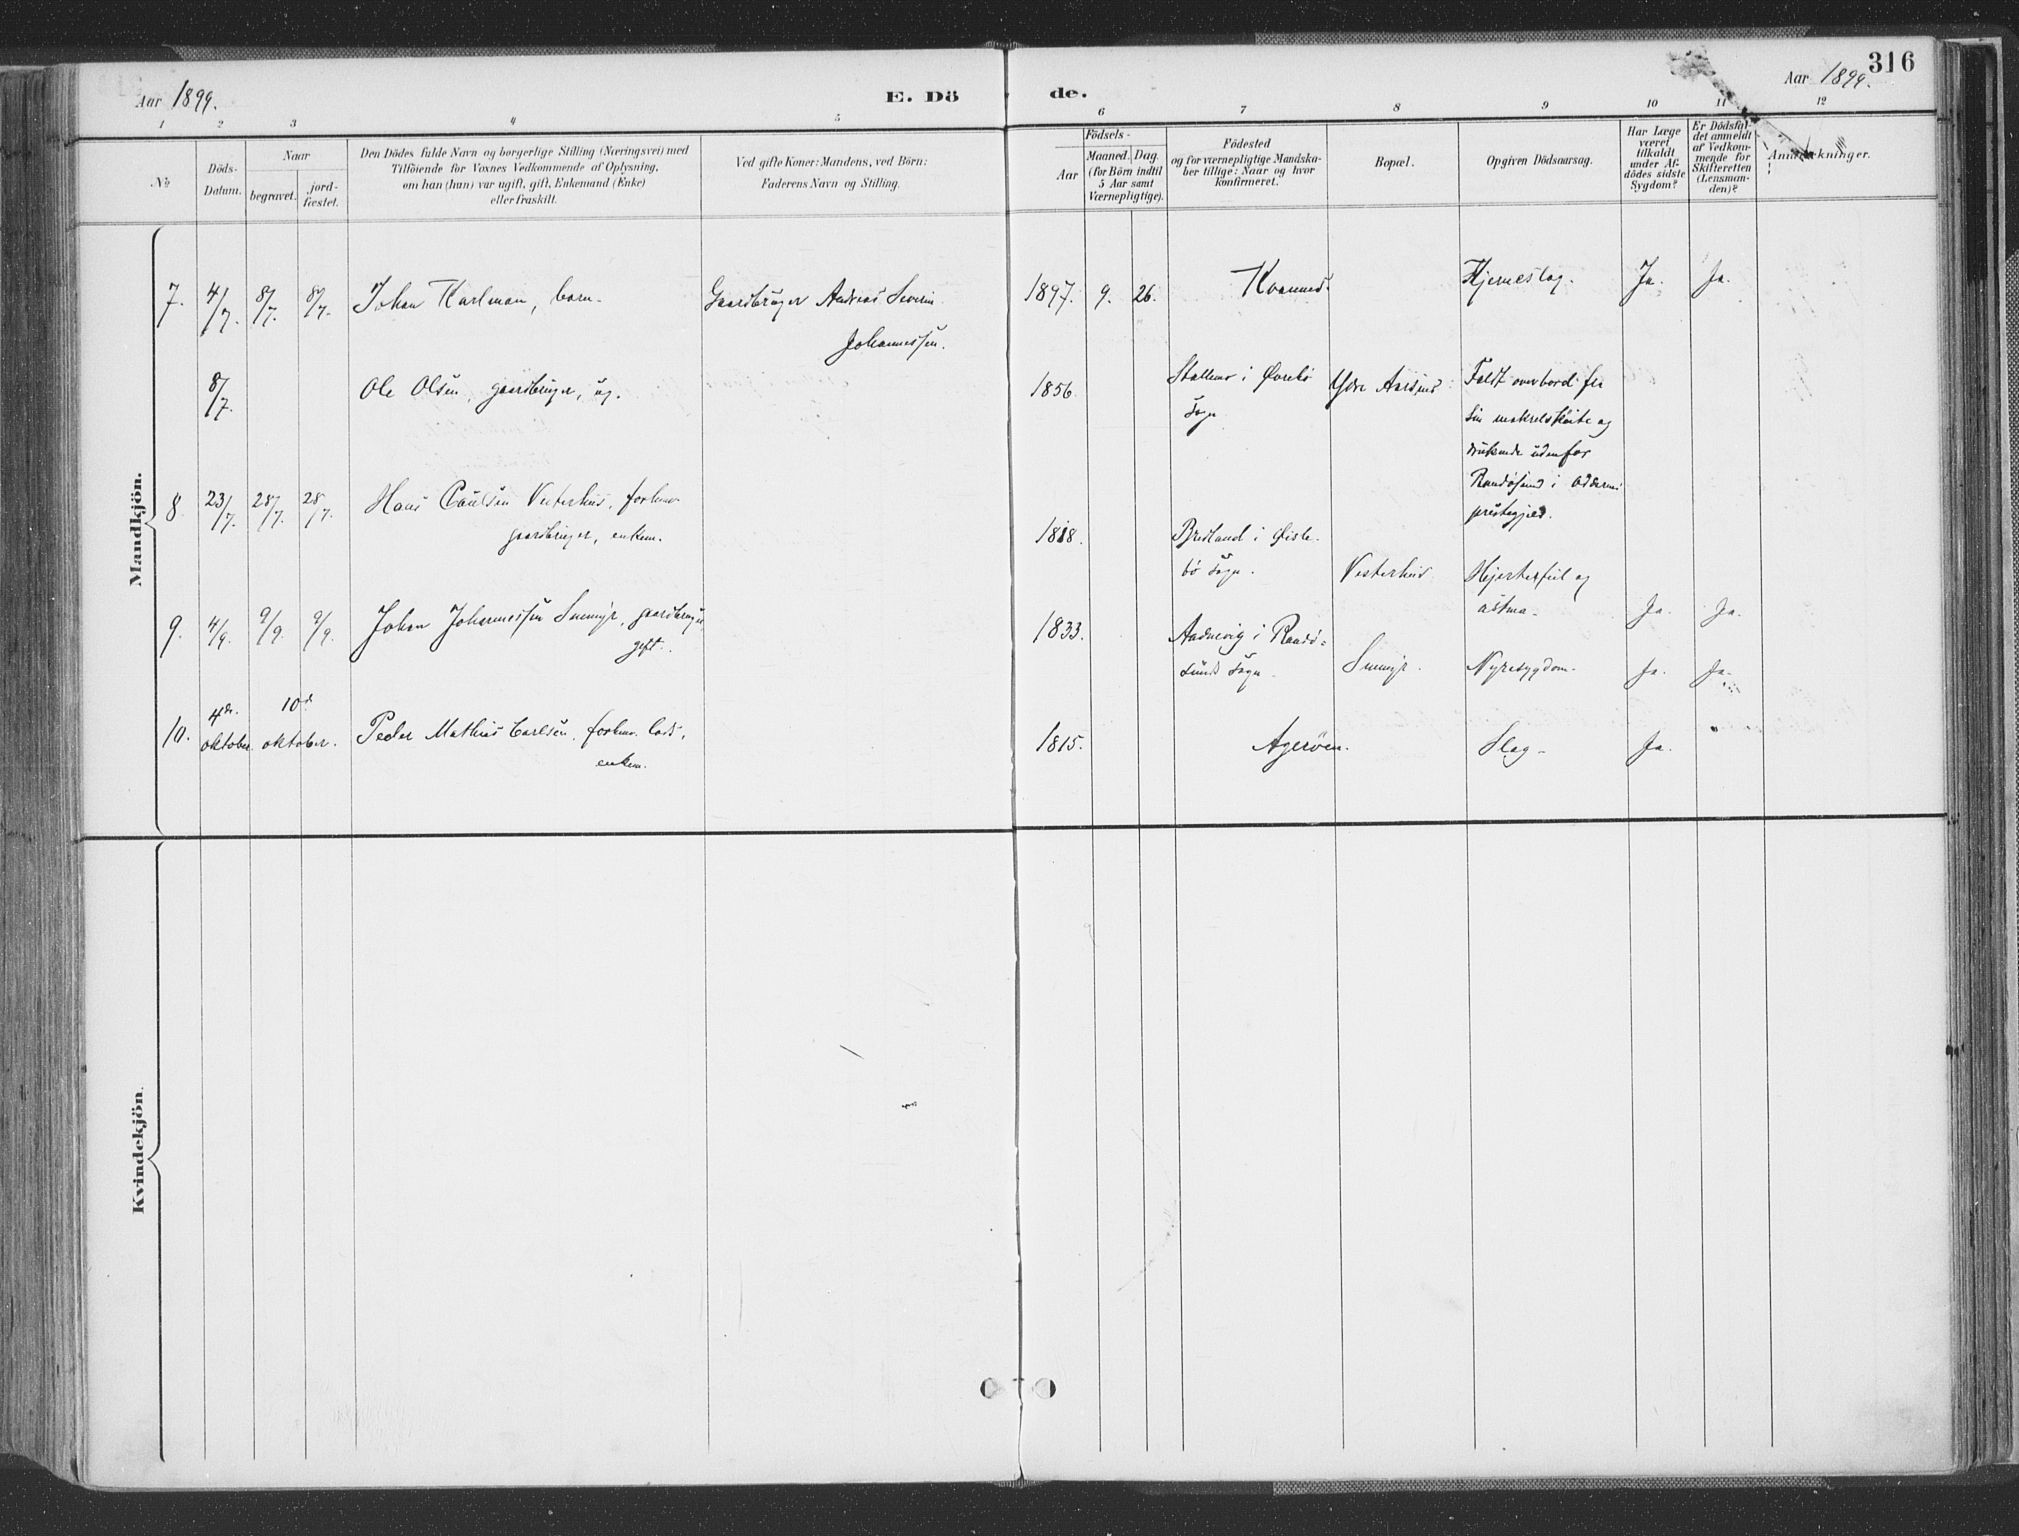 316
Aar 1899.
E. Dö
de.
Aar 1899.
1 2 3 4 5 6 7 8 9 10 11 12
No
Döds-
Datum.
Naar
begravet.
jord-
fæstet.
Den Dödes fulde Navn og borgerlige Stilling (Næringsvei) med
Tilföiende for Voxnes Vedkommende af Oplysning,
om han (hun) var ugift, gift, Enkemand (Enke)
eller fraskilt.
Ved gifte Koner: Mandens, ved Börn:
Faderens Navn og Stilling.
Födsels-
Aar
Maaned. Dag.
(for Börn indtil
5 Aar samt
Værnepligtige).
Födested
og for værnepligtige Mandska-
ber tillige: Naar og hvor
konfirmeret.
Bopæl.
Opgiven Dödsaarsag.
Har Læge
været
tilkaldt
under Af-
dödes sidste
Sygdom?
Er Dödsfal-
det anmeldt
af Vedkom-
mende for
Skifteretten
(Lensman-
den)?
Anmærkninger.
Mandkjön.
7. 4/7. 8/7. 8/7. Johan Karlman, barn. Gaardbruger Andreas Severin
Johannessen.
1897. 9. 26. Kvannes. Hjerneslag. Ja. Ja.
8/7. Ole Olsen, gaardbruger, ug.
1856 i Øvrebø
Sogn
Ydre Faldt overbord fra
sin makrelskøite og
druknede udenfor
Randøsund i Oddernes
prestegjeld.
8. 23/7. 28/7. 28/7. Hans Paulsen Vesterhus, forhenv.
gaardbruger, enkem.
1818. i Øisle-
bø Sogn. Vesterhus Hjertefeil og
astma. Ja. Ja.
9. 4/9. 9/9. 9/9. Johan Johannessen gaardbruger
gift.
1833. i Randø-
sunds Sogn Nyresygdom. Ja. Ja.
10. 4de
oktober 10d
oktober. Peder Mathias Carlsen, forhenv. lods,
enkem.
1815. Agerøen. Slag. Ja. "
Kvindekjön.